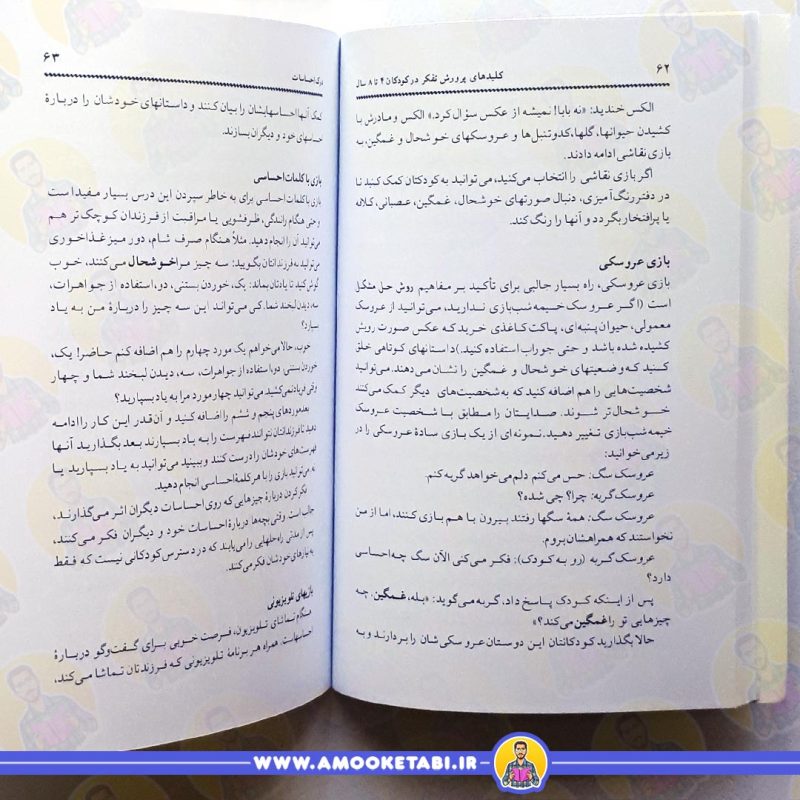 ۶۲
کلیدهای پرورش تفکر در کودکان ۴ تا ۸ سال
الکس خندید: «نه بابا! نمیشه از عکس سؤال کرد.» الکس و مادرش با
کشیدن حیوانها، گلها، کدوتنبل‌ها و عروسکهای خوشحال و غمگین، به
بازی نقاشی ادامه دادند.
اگر بازی نقاشی را انتخاب می‌کنید، می‌توانید به کودکتان کمک کنید تا
در دفتر رنگ‌آمیزی، دنبال صورتهای خوشحال، غمگین، عصبانی، کلافه
یا پرافتخار بگردد و آنها را رنگ کند.
بازی عروسکی
بازی عروسکی، راه بسیار جالبی برای تأکید بر مفاهیم روش حل مشکل
است (اگر عروسک خیمه شب‌بازی ندارید، می‌توانید از عروسک
معمولی، حیوان پنبه‌ای، پاکت کاغذی خرید که عکس صورت رویش
کشیده شده باشد و حتی جوراب استفاده کنید.) داستانهای کوتاهی خلق
کنید که وضعیتهای خوشحال و غمگین را نشان می‌دهند. می‌توانید
شخصیت‌هایی را هم اضافه کنید که به شخصیت‌های دیگر کمک می‌کنند
خوشحال‌تر شوند. صدایتان را مطابق با شخصیت عروسک
خیمه شب‌بازی تغییر دهید. نمونه‌ای از یک بازی سادهٔ عروسکی را در
زیر می‌خوانید:
عروسک سگ: حس می‌کنم دلم می‌خواهد گریه کنم.
عروسک گربه: چرا؟ چی شده؟
عروسک سگ: همهٔ سگها رفتند بیرون با هم بازی کنند، اما از من
نخواستند که همراهشان بروم.
عروسک گربه (رو به کودک): فکر می‌کنی الآن سگ چه احساسی
دارد؟
پس از اینکه کودک پاسخ داد، گربه می‌گوید: «بله، غمگین. چه
چیزهایی تو را غمگین می‌کند؟»
حالا بگذارید کودکانتان این دوستان عروسکی‌شان را بردارند و به
۶۳
درک احساسات
کمک آنها احساسهایشان را بیان کنند و داستانهای خودشان را دربارهٔ
احساسهای خود و دیگران بسازند.
بازی با کلمات احساسی
بازی با کلمات احساسی برای به خاطر سپردن این درس بسیار مفید است
و حتی هنگام رانندگی، ظرفشویی یا مراقبت از فرزندان کوچک‌تر هم
می‌توانید آن را انجام دهید. مثلاً هنگام صرف شام، دور میز غذاخوری
می‌توانید به فرزندانتان بگویید: سه چیز مرا خوشحال می‌کنند، خوب
گوش کنید تا یادتان بماند: یک، خوردن بستنی، دو، استفاده از جواهرات،
سه، دیدن لبخند شما. کی می‌تواند این سه چیز را دربارهٔ من به یاد
بسپارد؟
خوب، حالا می‌خواهم یک مورد چهارم را هم اضافه کنم حاضر! یک،
خوردن بستنی. دو، استفاده از جواهرات، سه، دیدن لبخند شما و چهار
وقتی فریاد نمی‌کشید می‌توانید چهار مورد مرا به یاد بسپارید؟
بعد موردهای پنجم و ششم را اضافه کنید و آن‌قدر این کار را ادامه
دهید تا فرزندانتان نتوانند فهرست را به یاد بسپارند بعد بگذارید آنها
فهرست‌های خودشان را درست کنند و ببینید می‌توانید به یاد بسپارید یا
نه. می‌توانید بازی را با هر کلمهٔ احساسی انجام دهید.
فکر کردن دربارهٔ چیزهایی که روی احساسات دیگران اثر می‌گذارند،
جالب است. وقتی بچه‌ها دربارهٔ احساسات خود و دیگران فکر می‌کنند،
پس از مدتی راه حلهایی را می‌یابند که در دسترس کودکانی نیست که فقط
به نیازهای خودشان فکر می‌کنند.
بازیهای تلویزیونی
هنگام تماشای تلویزیون، فرصت خوبی برای گفت‌وگو دربارهٔ
احساسهاست. همراه هر برنامهٔ تلویزیونی که فرزندتان تماشا می‌کند،
WWW.AMOOKETABI.IR